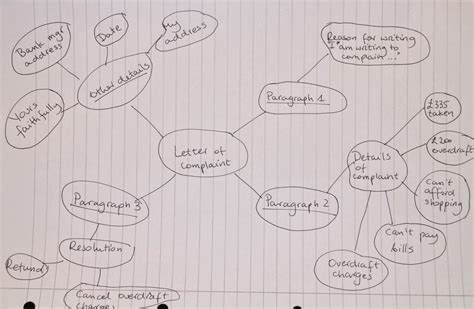 Bank mgr
address
Date
My
address
Other details
Yours
faithfully
Reason for writing
"I am writing to
complain..."
Paragraph 1
Letter of
complaint
Paragraph 2
Details
of
complaint
£335
taken
£200
overdraft
Can't
afford
shopping
Can't pay
bills
Overdraft
charges
Paragraph 3
Resolution
Refund
Cancel overdraft
charges